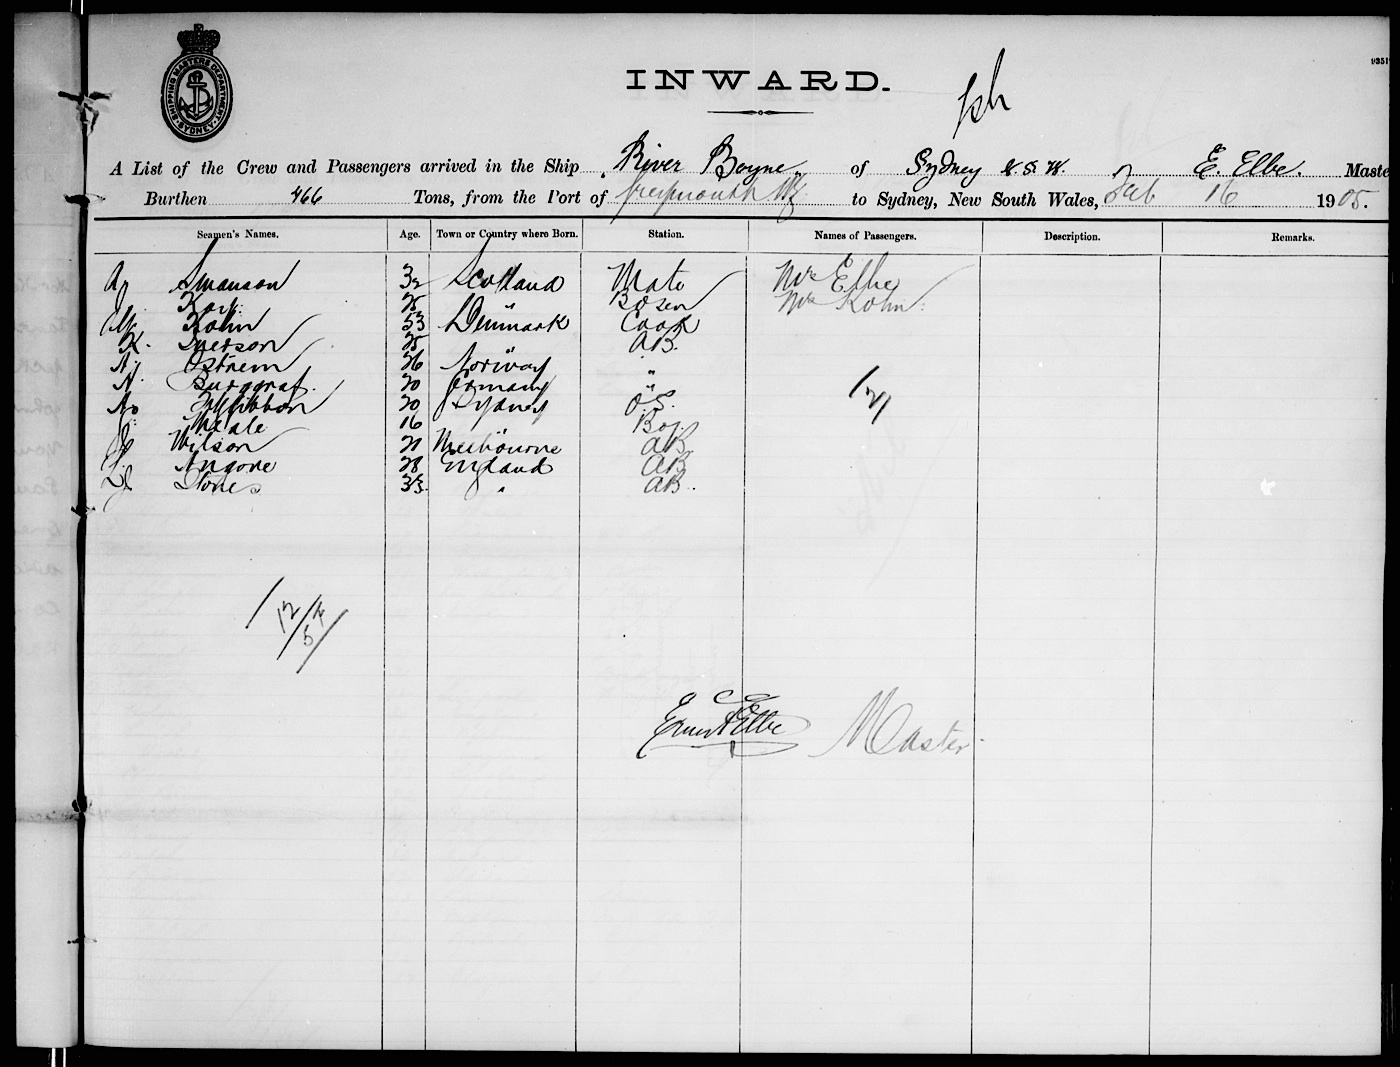 SHIPPING MASTERS DEPARTMENT SYDNEY
INWARD.
A List of the Crew and Passengers arrived in the Ship "River Boyne" of Sydney N.S.W. E. Elbe. Maste
Burthen 466 Tons, from the Port of Greymouth NZ to Sydney, New South Wales, Feb 16 1905.
Seamen's Names. Age. Town or Country where Born. Station. Names of Passengers. Description. Remarks.
A. Swanson 32 Scotland Mate Mrs Elbe
Karl 25 " Bosen Mrs Kohn.
Kohn 53 Denmark Cook
K. Iverson 25 " AB.
Ostrem 26 Norway "
Burggraf. 20 Germany "
Fitzgibbon 20 Sydney O.S.
Neale 16 " Boy.
Wilson 21 Melbourne AB
Angove 28 England AB
Jones 33. " AB.
12
5
Ernest Elbe Master.